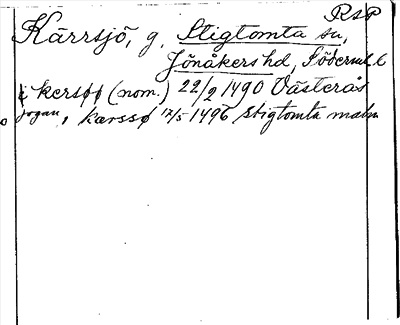 RSP
Kärrsjö, g. Stigtomta sn,
Jönåkers hd, Söderml. l
i kersøø (nom.) 22/2 1490 Västerås
jogan, karssø 17/5 1496 Stigtomta